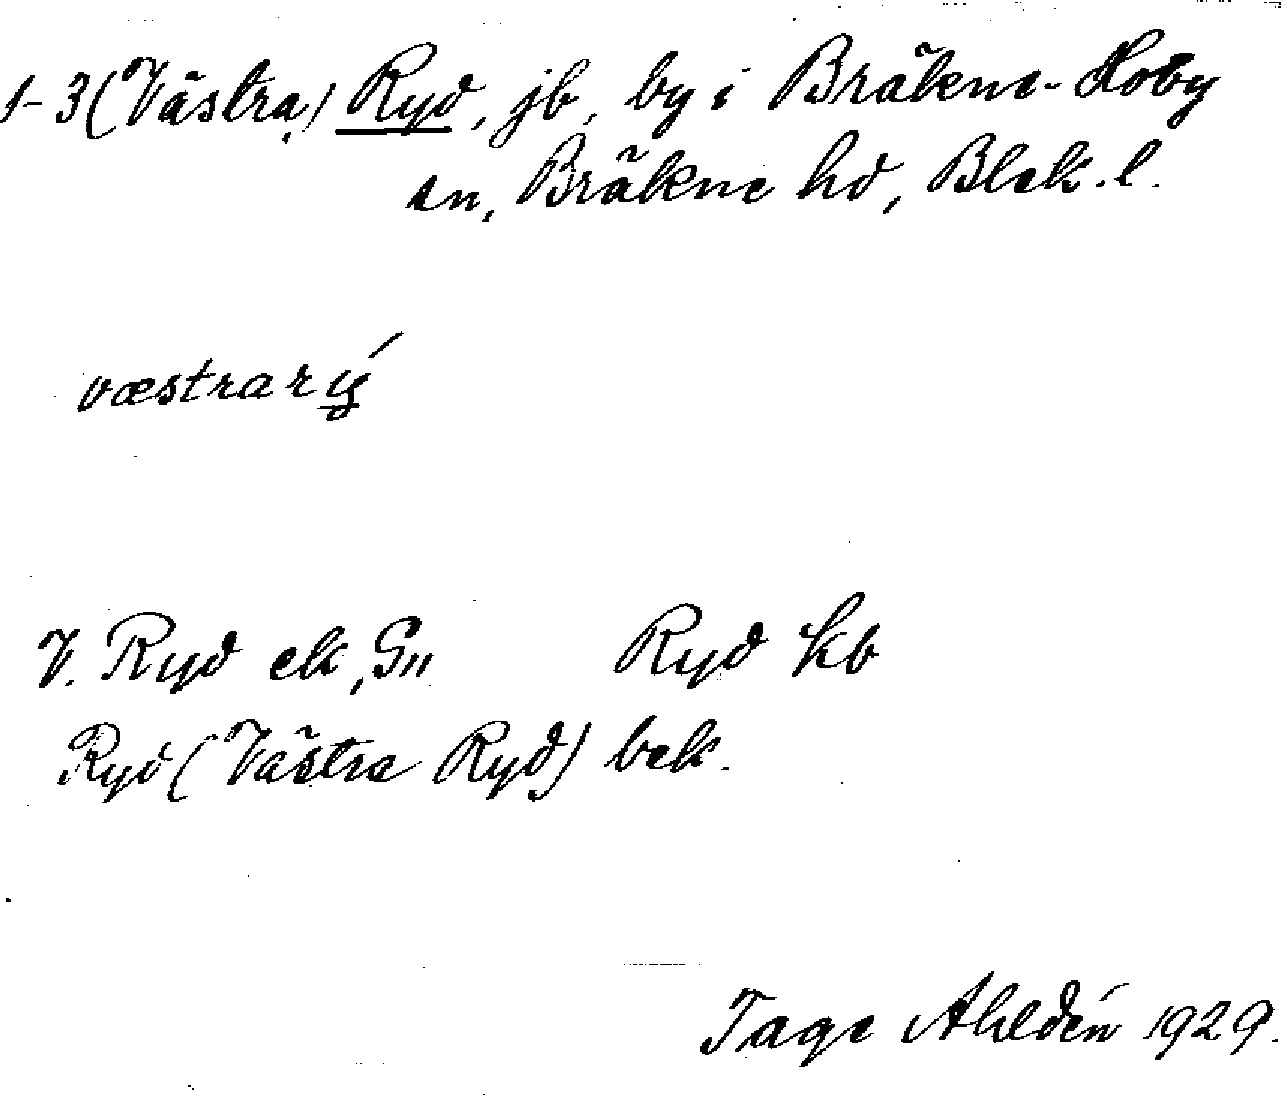 1-3 (Västra) Ryd, jb, by i Bräkne-Hoby
sn, Bräkne hd, Blek. l.
væstrarý
V. Ryd ek, Gs Ryd kb
Ryd (Västra Ryd) bek.
Tage Ahldén 1929.